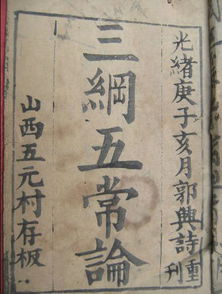 光緒庚子亥月郭興詩重刊
三綱五常論
山西五元村存板